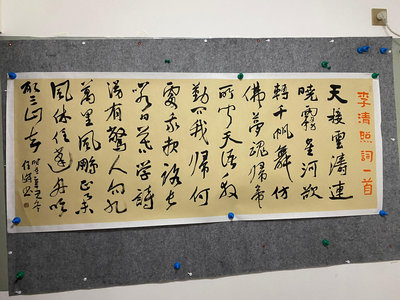 李清照詞一首
天接雲濤連
曉霧星河欲
轉千帆舞仿
佛夢魂歸帝
所闻天语殷
勤问我歸何
處我报路长
嗟日暮学詩
漫有驚人句九
萬里風鵬正举
風休住蓬舟吹
取三山去